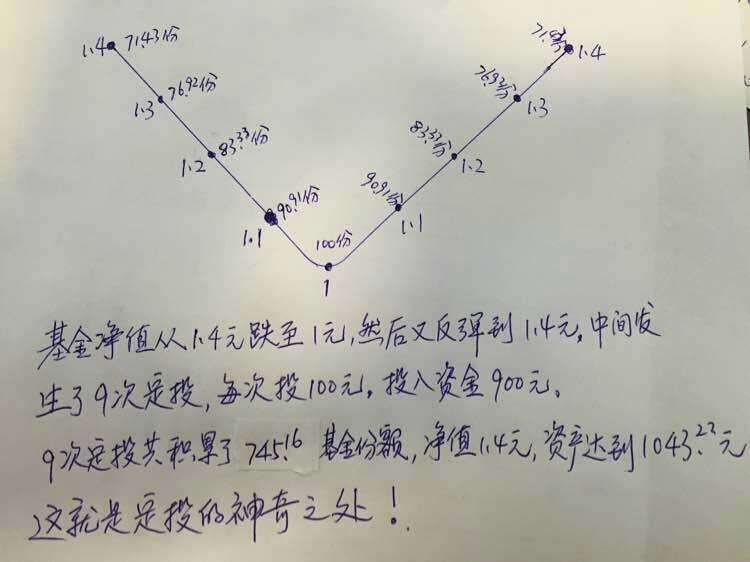 1.4 71.43份
71.43份 1.4
1.3 76.92份
76.92份 1.3
1.2 83.33份
83.33份 1.2
1.1 90.91份
90.91份 1.1
100份
1
基金净值从1.4元跌至1元,然后又反弹到1.4元,中间发
生了9次定投,每次投100元,投入资金900元。
9次定投共积累了745.16基金份额,净值1.4元,资产达到1043.23元
这就是定投的神奇之处!